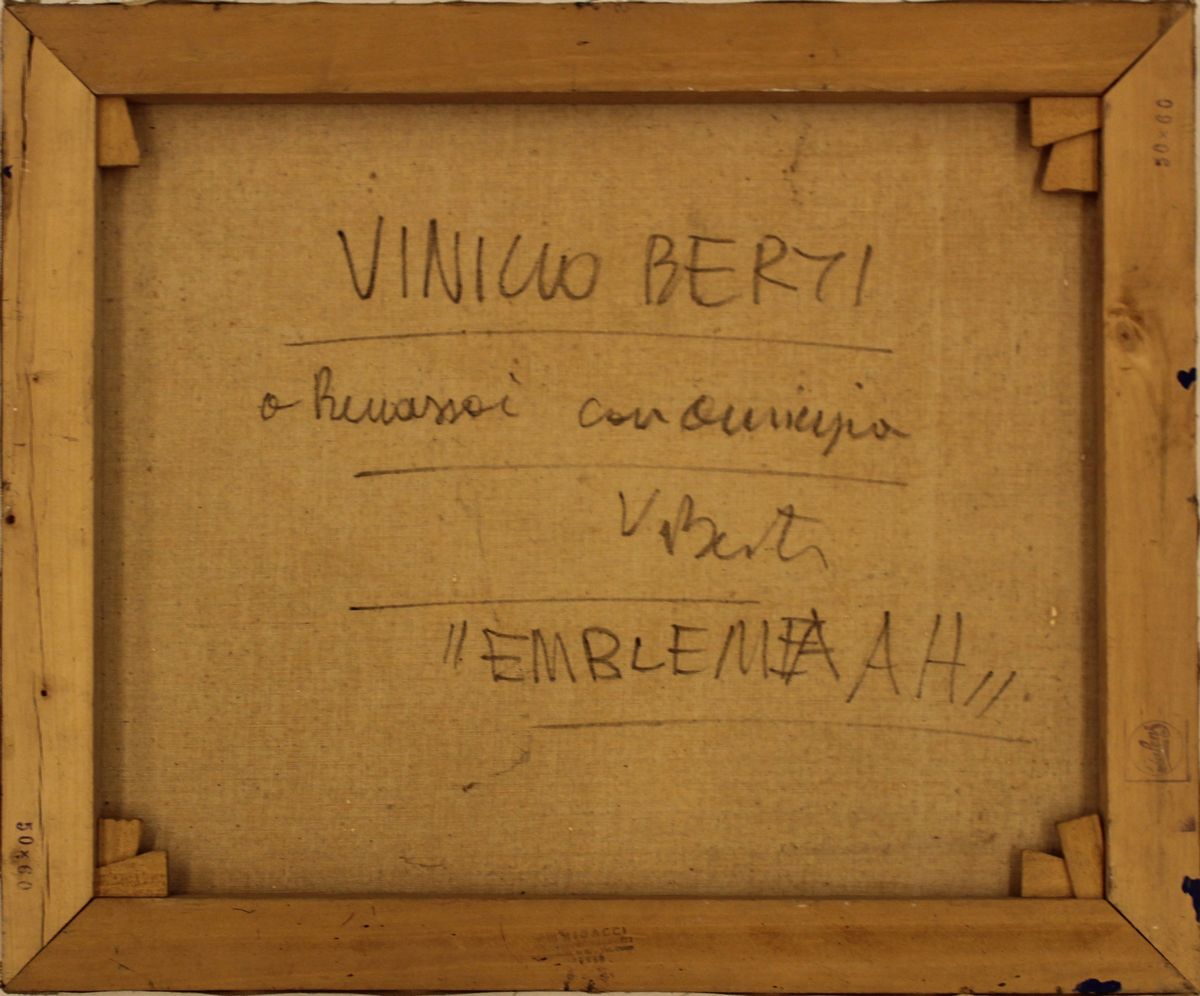 VINICIO BERTI
a
con amicizia
V Berti
"EMBLEMA AH"
50×60
50×60